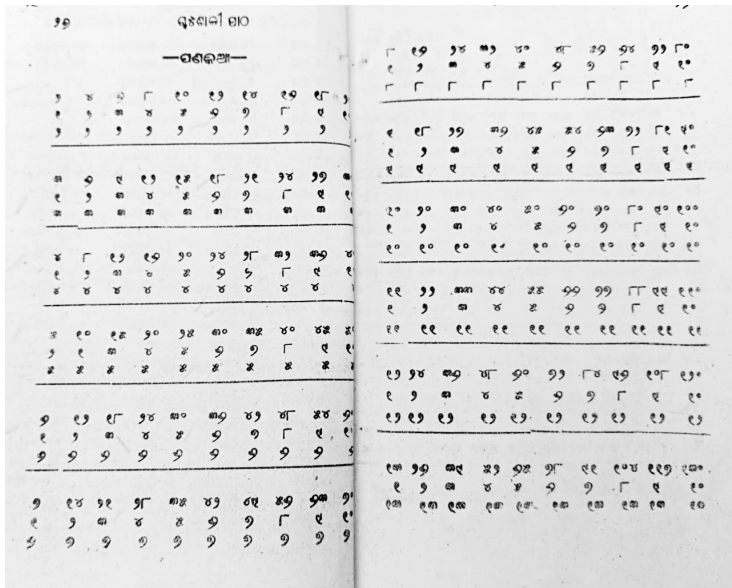 ପାଠ
—ପଣକିଆ—
୨ ୪ ୬ ୮ ୧୦ ୧୨ ୧୪ ୧୬ ୧୮ ୨
୧ ୨ ୩ ୪ ୫ ୬ ୭ ୮ ୯ ୧
୨ ୨ ୨ ୨ ୨ ୨ ୨ ୨ ୨
୩ ୬ ୯ ୧୨ ୧୫ ୧୮ ୨୧ ୨୪ ୨୭ ୩
୧ ୨ ୩ ୪ ୫ ୬ ୭ ୮ ୯ ୧
୩ ୩ ୩ ୩ ୩ ୩ ୩ ୩ ୩
୪ ୮ ୧୨ ୧୬ ୨୦ ୨୪ ୨୮ ୩୨ ୩୬ ୪
୧ ୨ ୩ ୪ ୫ ୬ ୭ ୮ ୯ ୧
୪ ୪ ୪ ୪ ୪ ୪ ୪ ୪ ୪
୫ ୧୦ ୧୫ ୨୦ ୨୫ ୩୦ ୩୫ ୪୦ ୪୫ ୫୦
୧ ୨ ୩ ୪ ୫ ୬ ୭ ୮ ୯ ୧
୫ ୫ ୫ ୫ ୫ ୫ ୫ ୫ ୫ ୫
୬ ୧୨ ୧୮ ୨୪ ୩୦ ୩୬ ୪୨ ୪୮ ୫୪ ୬୦
୧ ୨ ୩ ୪ ୫ ୬ ୭ ୮ ୯ ୧
୬ ୬ ୬ ୬ ୬ ୬ ୬ ୬ ୬ ୬
୭ ୧୪ ୨୧ ୨୮ ୩୫ ୪୨ ୪୯ ୫୬ ୬୩ ୭୦
୧ ୨ ୩ ୪ ୫ ୬ ୭ ୮ ୯ ୧୦
୭ ୭ ୭ ୭ ୭ ୭ ୭ ୭ ୭ ୭
୮ ୧୬ ୨୪ ୩୨ ୪୦ ୪୮ ୫୬ ୬୪ ୭୨ ୮୦
୧ ୨ ୩ ୪ ୫ ୬ ୭ ୮ ୯ ୧୦
୮ ୮ ୮ ୮ ୮ ୮ ୮ ୮ ୮ ୮
୯ ୧୮ ୨୭ ୩୬ ୪୫ ୫୪ ୬୩ ୭୨ ୮୧ ୯୦
୧ ୨ ୩ ୪ ୫ ୬ ୭ ୮ ୯ ୧୦
୯ ୯ ୯ ୯ ୯ ୯ ୯ ୯ ୯ ୯
୧୦ ୨୦ ୩୦ ୪୦ ୫୦ ୬୦ ୭୦ ୮୦ ୯୦ ୧୦୦
୧ ୨ ୩ ୪ ୫ ୬ ୭ ୮ ୯ ୧୦
୧୦ ୧୦ ୧୦ ୧୦ ୧୦ ୧୦ ୧୦ ୧୦ ୧୦ ୧୦
୧୧ ୨୨ ୩୩ ୪୪ ୫୫ ୬୬ ୭୭ ୮୮ ୯୯ ୧୧୦
୧ ୨ ୩ ୪ ୫ ୬ ୭ ୮ ୯ ୧୦
୧୧ ୧୧ ୧୧ ୧୧ ୧୧ ୧୧ ୧୧ ୧୧ ୧୧ ୧୧
୧୨ ୨୪ ୩୬ ୪୮ ୬୦ ୭୨ ୮୪ ୯୬ ୧୦୮ ୧୨୦
୧ ୨ ୩ ୪ ୫ ୬ ୭ ୮ ୯ ୧୦
୧୨ ୧୨ ୧୨ ୧୨ ୧୨ ୧୨ ୧୨ ୧୨ ୧୨ ୧୨
୧୩ ୨୬ ୩୯ ୫୨ ୬୫ ୭୮ ୯୧ ୧୦୪ ୧୧୭ ୧୩୦
୧ ୨ ୩ ୪ ୫ ୬ ୭ ୮ ୯ ୧୦
୧୩ ୧୩ ୧୩ ୧୩ ୧୩ ୧୩ ୧୩ ୧୩ ୧୩ ୧୩